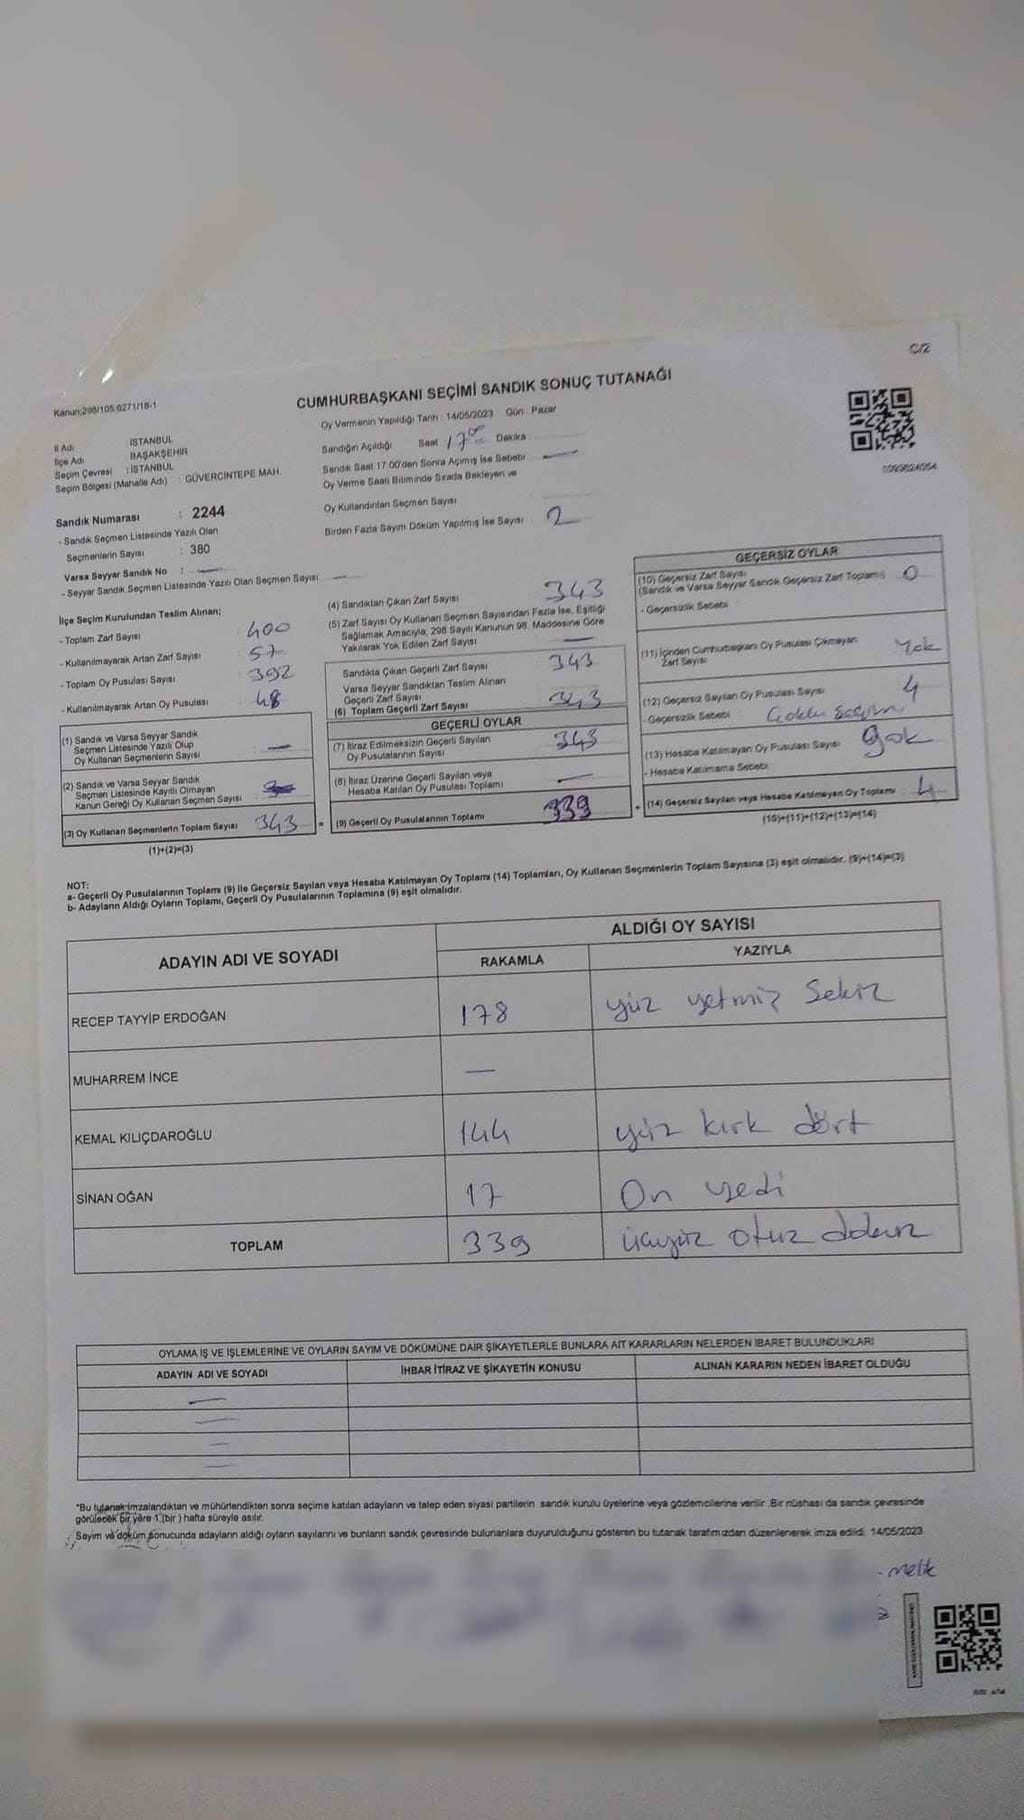 C/2
Kanun:298/105,6271/18-1
CUMHURBAŞKANI SEÇİMİ SANDIK SONUÇ TUTANAĞI
Oy Vermenin Yapıldığı Tarih : 14/05/2023 Gün : Pazar
İl Adı : İSTANBUL
İlçe Adı : BAŞAKŞEHİR
Seçim Çevresi : İSTANBUL
Seçim Bölgesi (Mahalle Adı) : GÜVERCİNTEPE MAH.
Sandığın Açıldığı Saat 17 00 Dakika
Sandık Saat 17.00'den Sonra Açılmış İse Sebebi —
Oy Verme Saati Bitiminde Sırada Bekleyen ve
Oy Kullandırılan Seçmen Sayısı
Birden Fazla Sayım Döküm Yapılmış İse Sayısı 2
Sandık Numarası : 2244
- Sandık Seçmen Listesinde Yazılı Olan
Seçmenlerin Sayısı : 380
Varsa Seyyar Sandık No : —
- Seyyar Sandık Seçmen Listesinde Yazılı Olan Seçmen Sayısı —
İlçe Seçim Kurulundan Teslim Alınan;
- Toplam Zarf Sayısı 400
- Kullanılmayarak Artan Zarf Sayısı 57
- Toplam Oy Pusulası Sayısı 392
- Kullanılmayarak Artan Oy Pusulası 48
(1) Sandık ve Varsa Seyyar Sandık
Seçmen Listesinde Yazılı Olup
Oy Kullanan Seçmenlerin Sayısı —
(2) Sandık ve Varsa Seyyar Sandık
Seçmen Listesinde Kayıtlı Olmayan
Kanun Gereği Oy Kullanan Seçmen Sayısı
(3) Oy Kullanan Seçmenlerin Toplam Sayısı 343 =
(1)+(2)=(3)
(4) Sandıktan Çıkan Zarf Sayısı 343
(5) Zarf Sayısı Oy Kullanan Seçmen Sayısından Fazla İse, Eşitliği
Sağlamak Amacıyla; 298 Sayılı Kanunun 98. Maddesine Göre
Yakılarak Yok Edilen Zarf Sayısı —
Sandıkta Çıkan Geçerli Zarf Sayısı 343
Varsa Seyyar Sandıktan Teslim Alınan
Geçerli Zarf Sayısı
(6) Toplam Geçerli Zarf Sayısı 343
GEÇERLİ OYLAR
(7) İtiraz Edilmeksizin Geçerli Sayılan
Oy Pusulalarının Sayısı 343
(8) İtiraz Üzerine Geçerli Sayılan veya
Hesaba Katılan Oy Pusulası Toplamı —
(9) Geçerli Oy Pusulalarının Toplamı 339 +
GEÇERSİZ OYLAR
(10) Geçersiz Zarf Sayısı
(Sandık ve Varsa Seyyar Sandık Geçersiz Zarf Toplamı) 0
- Geçersizlik Sebebi :
(11) İçinden Cumhurbaşkanı Oy Pusulası Çıkmayan
Zarf Sayısı Yok
(12) Geçersiz Sayılan Oy Pusulası Sayısı 4
- Geçersizlik Sebebi :
(13) Hesaba Katılmayan Oy Pusulası Sayısı yok
- Hesaba Katılmama Sebebi
(14) Geçersiz Sayılan veya Hesaba Katılmayan Oy Toplamı 4
(10)+(11)+(12)+(13)=(14)
NOT:
a- Geçerli Oy Pusulalarının Toplamı (9) ile Geçersiz Sayılan veya Hesaba Katılmayan Oy Toplamı (14) Toplamları, Oy Kullanan Seçmenlerin Toplam Sayısına (3) eşit olmalıdır. (9)+(14)=(3)
b- Adayların Aldığı Oyların Toplamı, Geçerli Oy Pusulalarının Toplamına (9) eşit olmalıdır.
ADAYIN ADI VE SOYADI
ALDIĞI OY SAYISI
RAKAMLA YAZIYLA
RECEP TAYYİP ERDOĞAN 178 yüz yetmiş Sekiz
MUHARREM İNCE —
KEMAL KILIÇDAROĞLU 144 yüz kırk dört
SİNAN OĞAN 17 On yedi
TOPLAM 339 üçyüz otuz dokuz
OYLAMA İŞ VE İŞLEMLERİNE VE OYLARIN SAYIM VE DÖKÜMÜNE DAİR ŞİKAYETLERLE BUNLARA AİT KARARLARIN NELERDEN İBARET BULUNDUKLARI
ADAYIN ADI VE SOYADI İHBAR İTİRAZ VE ŞİKAYETİN KONUSU ALINAN KARARIN NEDEN İBARET OLDUĞU
—
—
—
—
*Bu tutanak imzalandıktan ve mühürlendikten sonra seçime katılan adayların ve talep eden siyasi partilerin sandık kurulu üyelerine veya gözlemcilerine verilir. Bir nüshası da sandık çevresinde
görülecek bir yere 1 (bir) hafta süreyle asılır.
Sayım ve döküm sonucunda adayların aldığı oyların sayılarını ve bunların sandık çevresinde bulunanlara duyurulduğunu gösteren bu tutanak tarafımızdan düzenlenerek imza edildi. 14/05/2023
melik